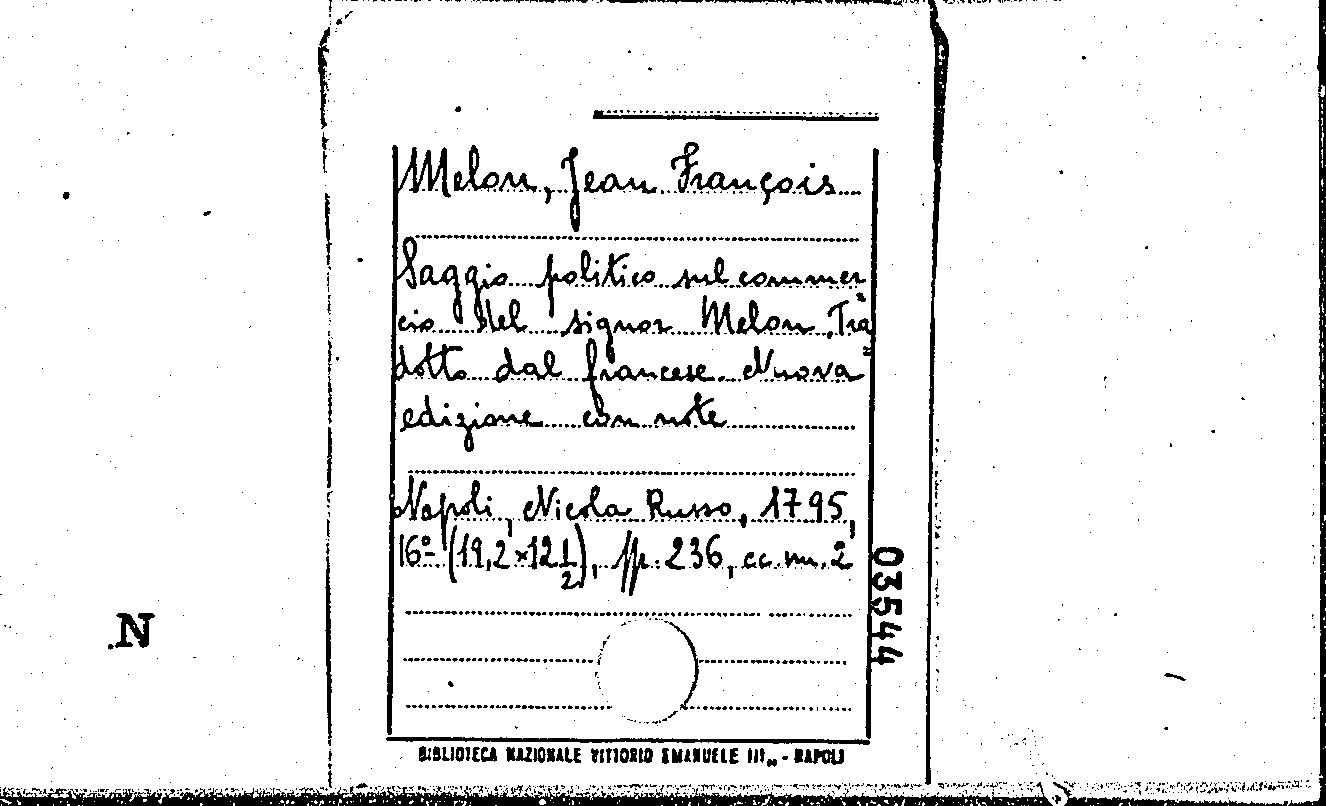 Melon, Jean François
Saggio politico sul commer"
cio del signor Melon. Tra"
dotto dal francese. Nuova
edizione con note
Napoli, Nicola Russo, 1795,
16º (19,2×12 1/2), pp. 236, cc. nn. 2
03544
N
BIBLIOTECA NAZIONALE VITTORIO EMANUELE III„ - NAPOLI